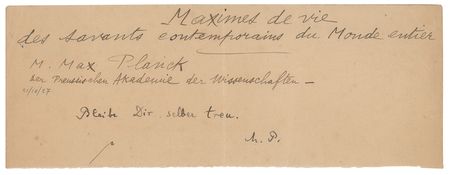 Maximes de vie
des savants contemporains du Monde entier
M. Max Planck
der Preussischen Akademie der Wissenschaften –
Bleibe Dir selber treu.
M. P.